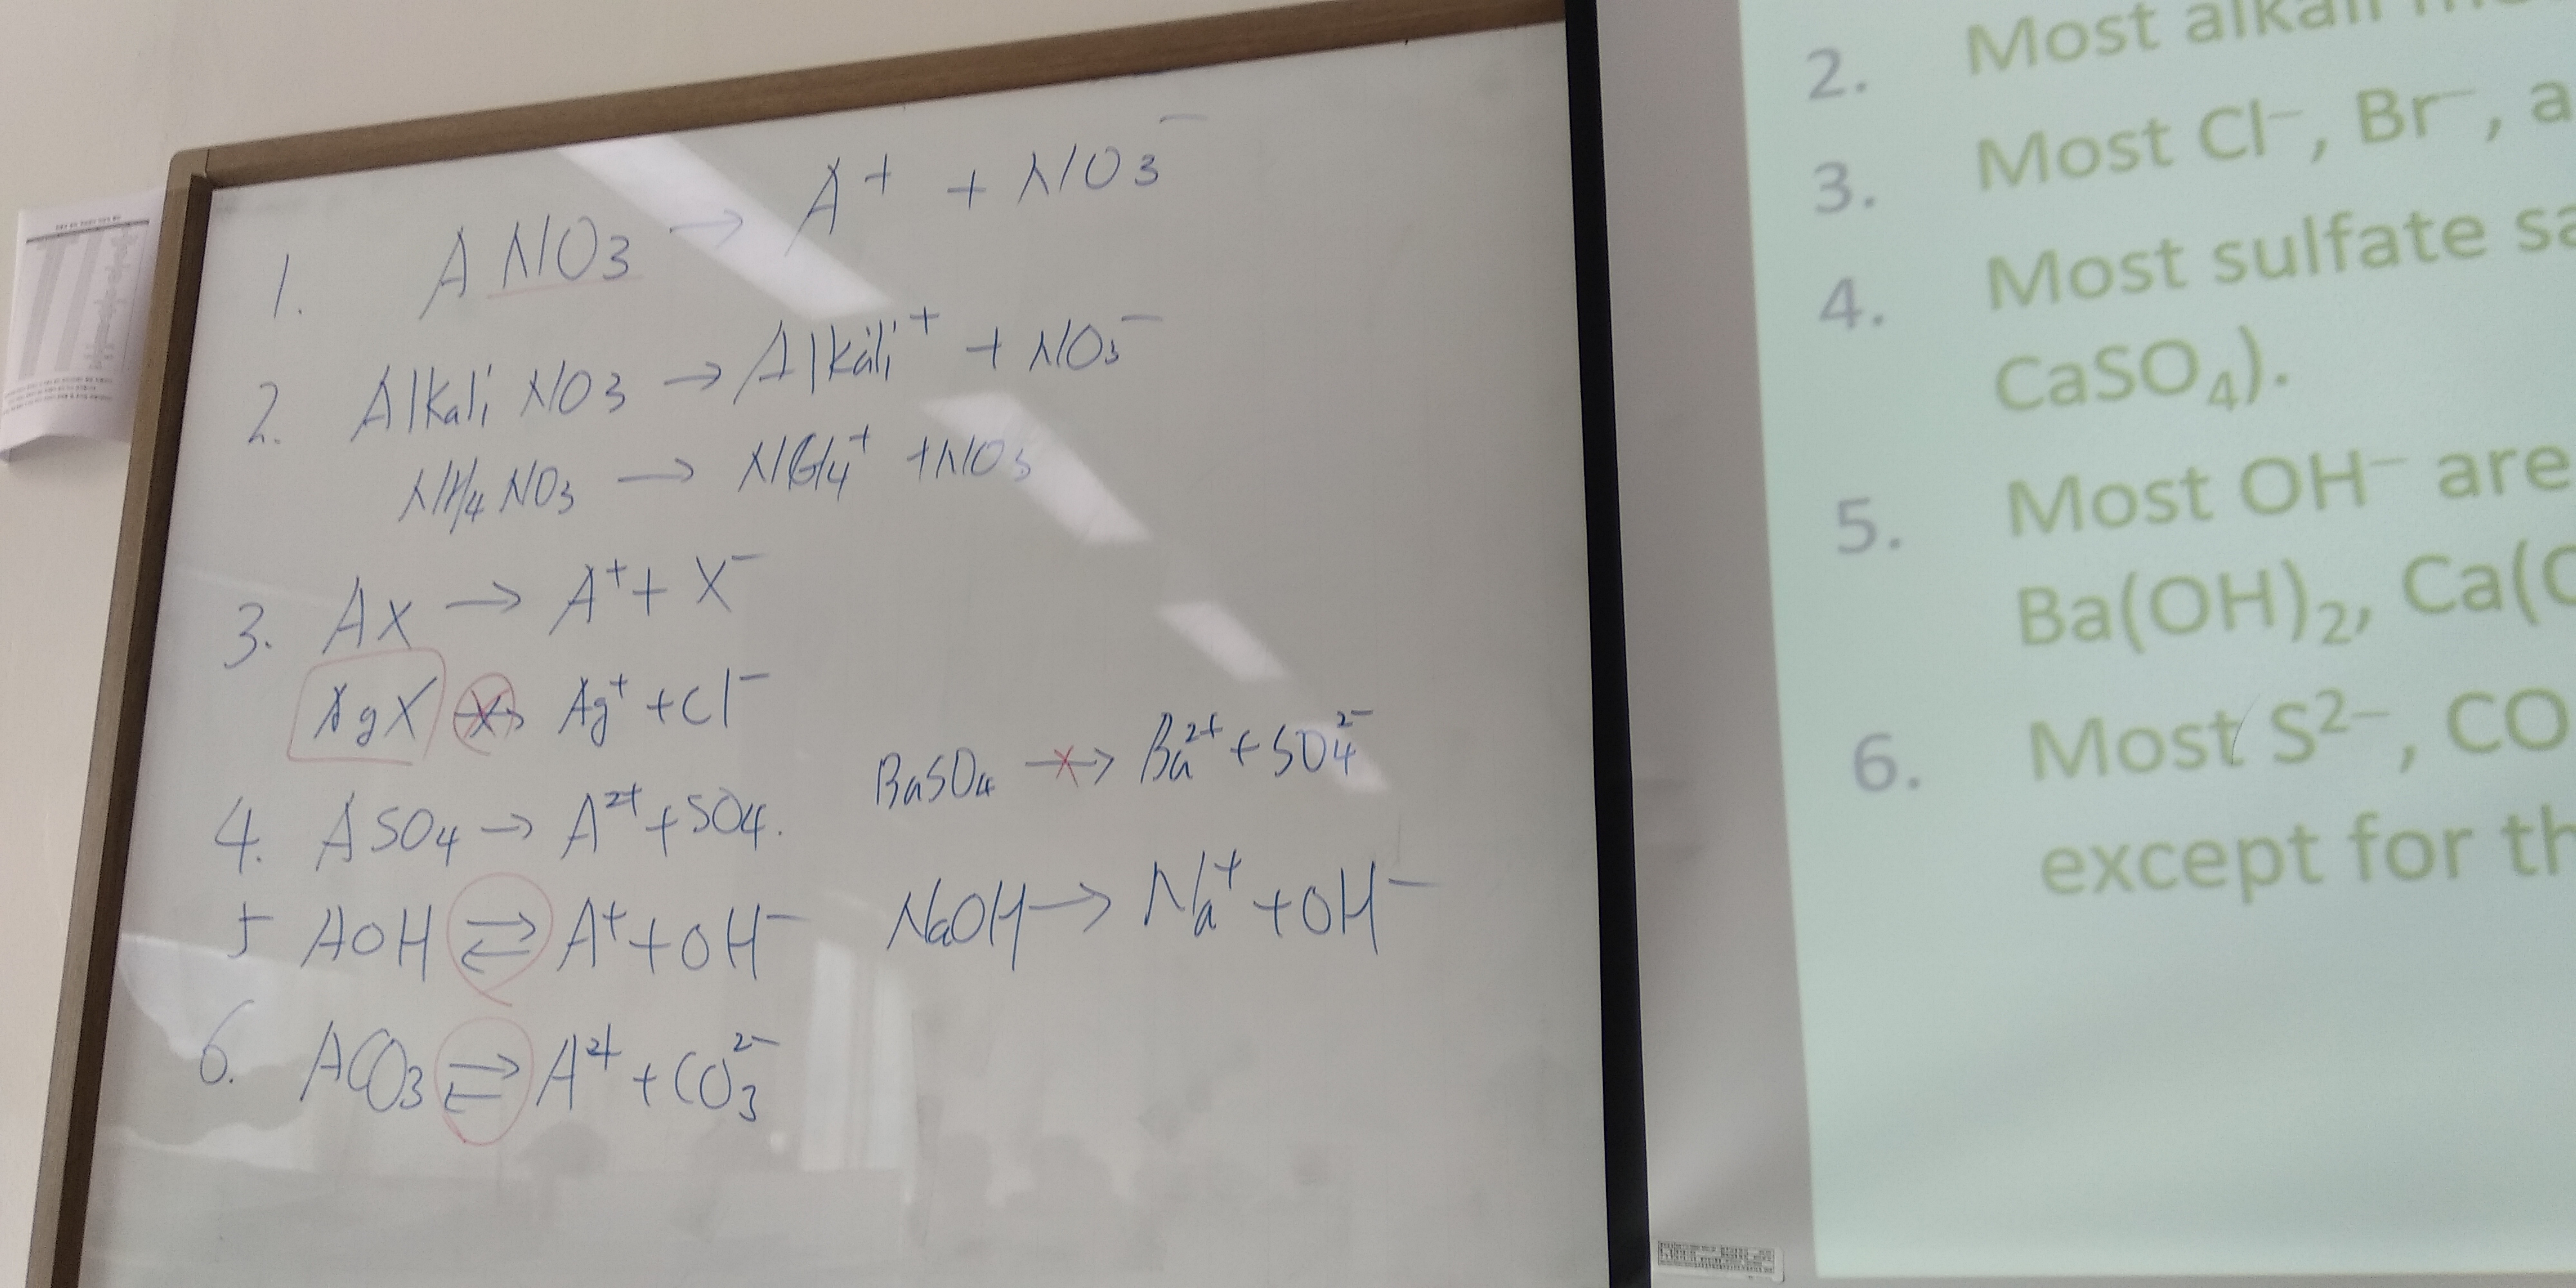 1. ANO3 → A+ + NO3-
2. Alkali NO3 → Alkali+ + NO3-
NH4 NO3 → NH4+ + NO3
3. AX → A+ + X-
AgX → Ag+ + Cl-
4. ASO4 → A2+ + SO4.
BaSO4 → Ba2+ + SO42-
5 AOH ⇌ A+ + OH-
NaOH → Na+ + OH-
6. ACO3 ⇌ A2+ + CO32-
2. Most alkali
3. Most Cl−, Br−, a
4. Most sulfate sa
CaSO4).
5. Most OH− are
Ba(OH)2, Ca(
6. Most S2−, CO
except for th